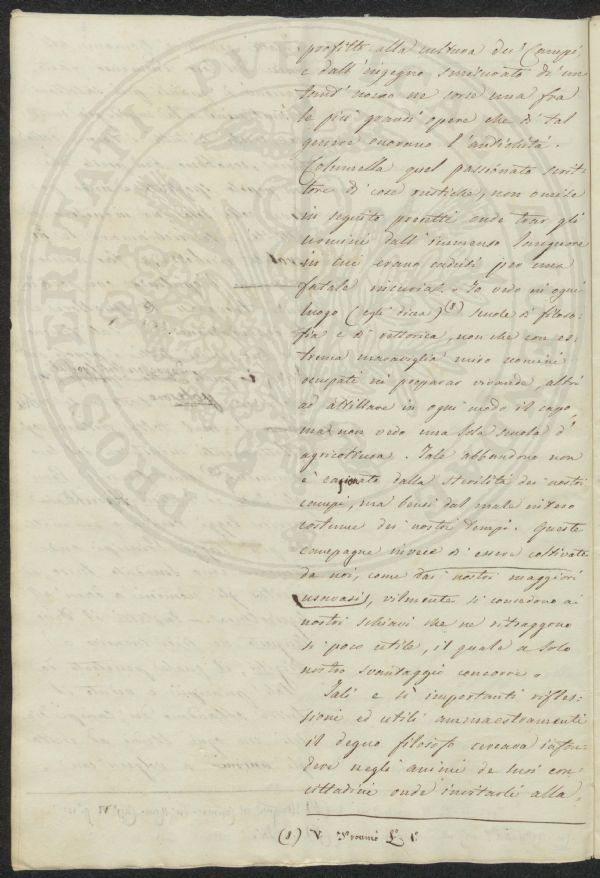 profitto alla cultura dei Campi,
e dall' ingegno smisurato di un
tant' uomo ne sorse una fra
le più grandi opere che di tal
genere onorano l' antichità.
Columella quel passionato scrit-
tore di cose rustiche, non omise
in seguito precetti onde trar gli
uomini dall' immenso languore
in cui erano caduti per una
fatale incuria. „ Io vedo in ogni
luogo (egli dicea) (8) scuole di filoso-
fia e di rettorica, non che con es-
trema maraviglia miro uomini
occupati in preparar vivande, altri
ad attillare in ogni modo il capo,
ma non vedo una sola scuola d'
agricoltura. Tale abbandono non
è cagionato dalla sterilità dei nostri
campi, ma bensì dal male inteso
costume dei nostri tempi. Queste
campagne invece di essere coltivate
da noi, come dai nostri maggiori
usavasi, vilmente si concedono ai
nostri schiavi che ne ritraggono
sì poco utile, il quale a solo
nostro svantaggio concorre „
Tali e sì importanti rifles-
sioni ed utili ammaestramenti
il degno filosofo cercava infon-
dere negli animi de suoi con-
cittadini onde invitarli alla
(8) V Proemio L.° 1.°
PROSPERITATI PUBLICAE